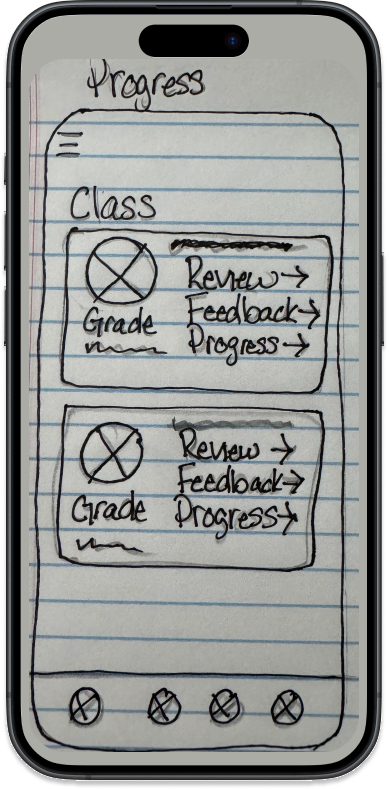 Progress
Class
Review →
Feedback →
Progress →
Grade
Review →
Feedback →
Progress →
Grade